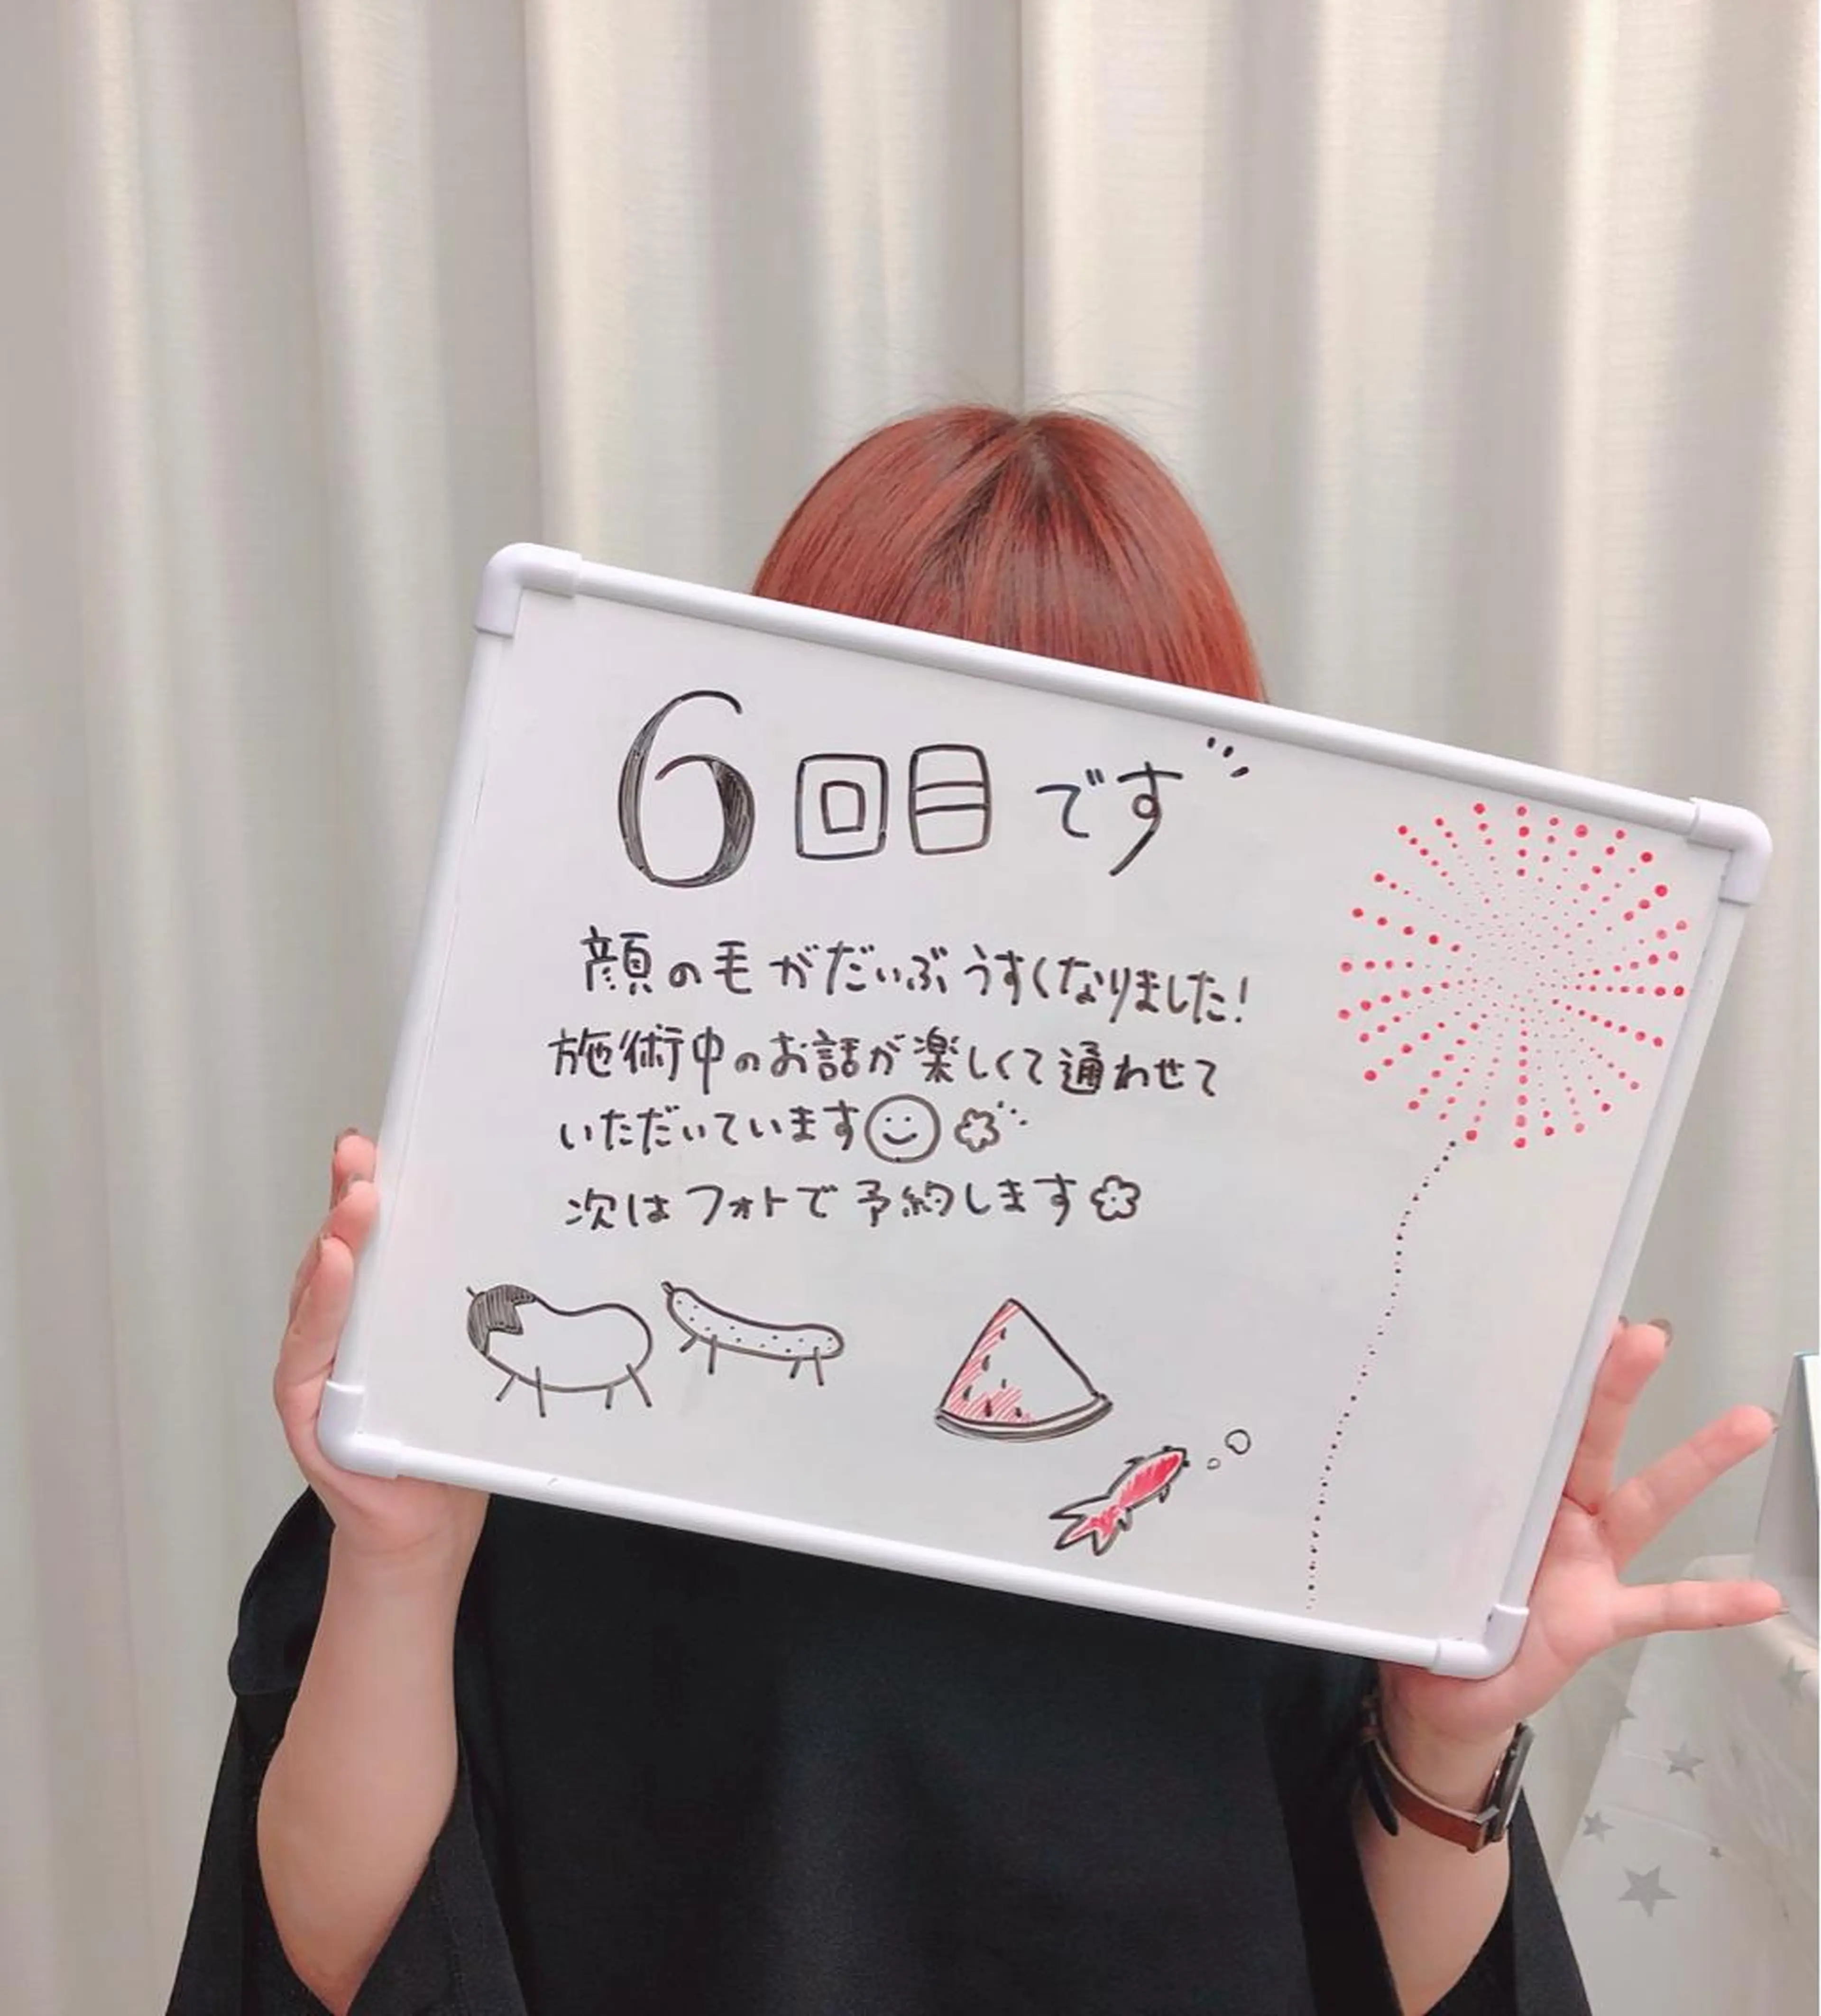 6回目です
顔の毛がだいぶうすくなりました!
施術中のお話が楽しくて通わせて
いただいています
次はフォトで予約します